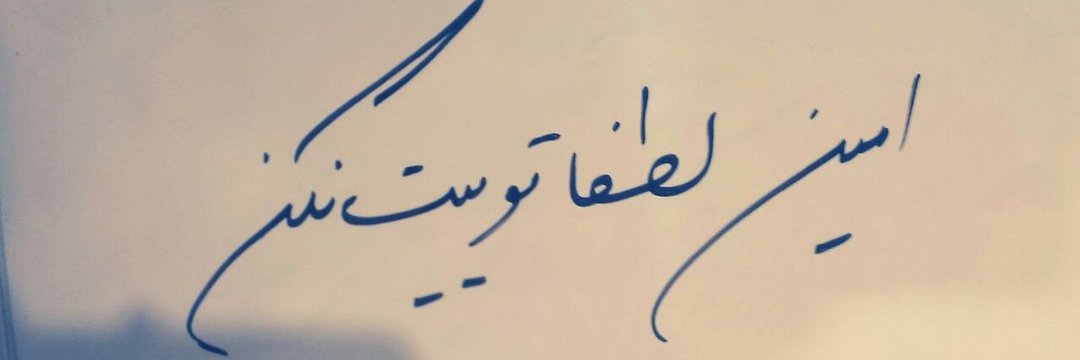 امین لطفا توییت نکن